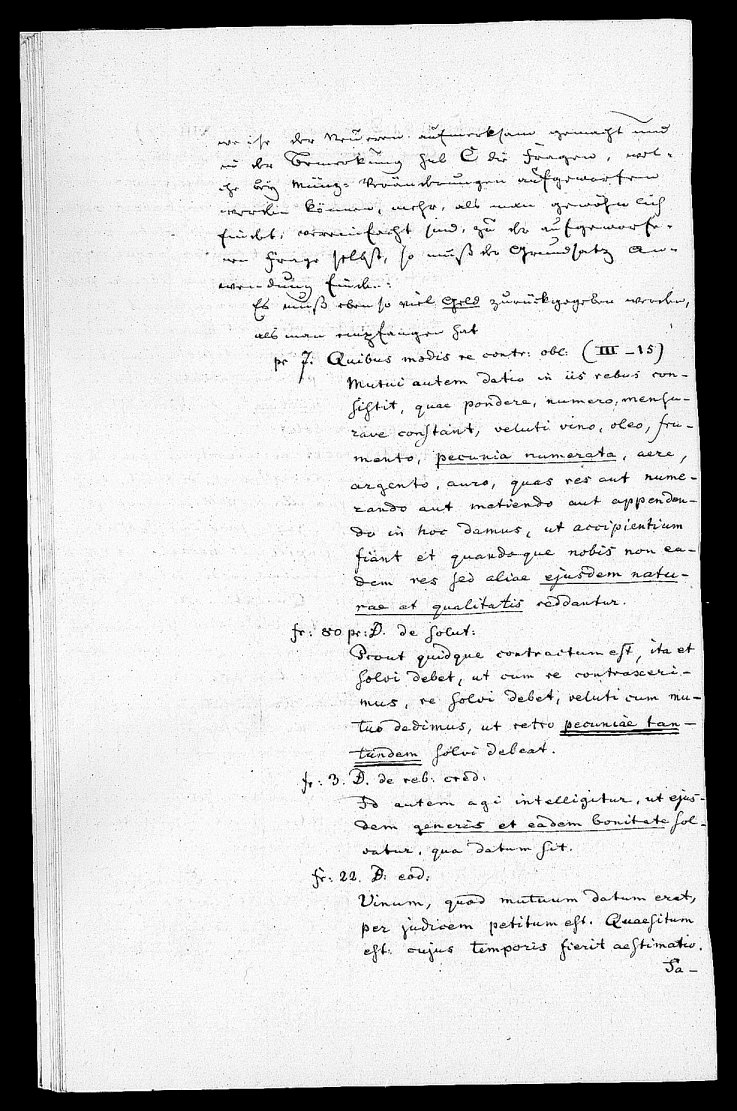 weise der Neueren aufmerksam gemacht und
in der Bemerkung sub C die Fragen, wel-
che bey Münz-Veränderungen aufgeworfen
werden können, mehr, als man gewöhnlich
findet, vereinfacht sind, zu der aufgeworfe-
nen Frage selbst, so muß der Grundsatz An-
wendung finden:
Es muß eben so viel Geld zurückgegeben werden,
als man empfangen hat
pr J. Quibus modis re contr: obl: (III_15)
Mutui autem datio in iis rebus con-
sistit, quae pondere, numero, mensu-
rave constant, veluti vino, oleo, fru-
mento, pecunia numerata, aere,
argento, auro, quas res aut nume-
rando aut metiendo aut appenden-
do in hoc damus, ut accipientium
fiant et quandoque nobis non ea-
dem res sed aliae ejusdem natu-
rae et qualitatis reddantur.
fr: 80 pr: D. de solut:
Prout quidque contractum est, ita et
solvi debet, ut cum re contraxeri-
mus, re solvi debet, veluti cum mu-
tuo dedimus, ut retro pecuniae tan-
tundem solvi debeat.
fr: 3. D. de reb: cred:
Id autem agi intelligitur, ut ejus-
dem generis et eadem bonitate sol-
vatur, qua datum sit.
fr: 22. D: eod:
Vinum, quod mutuum datum erat,
per judicem petitum est. Quaesitum
est: cujus temporis fierit aestimatio.
Sa-